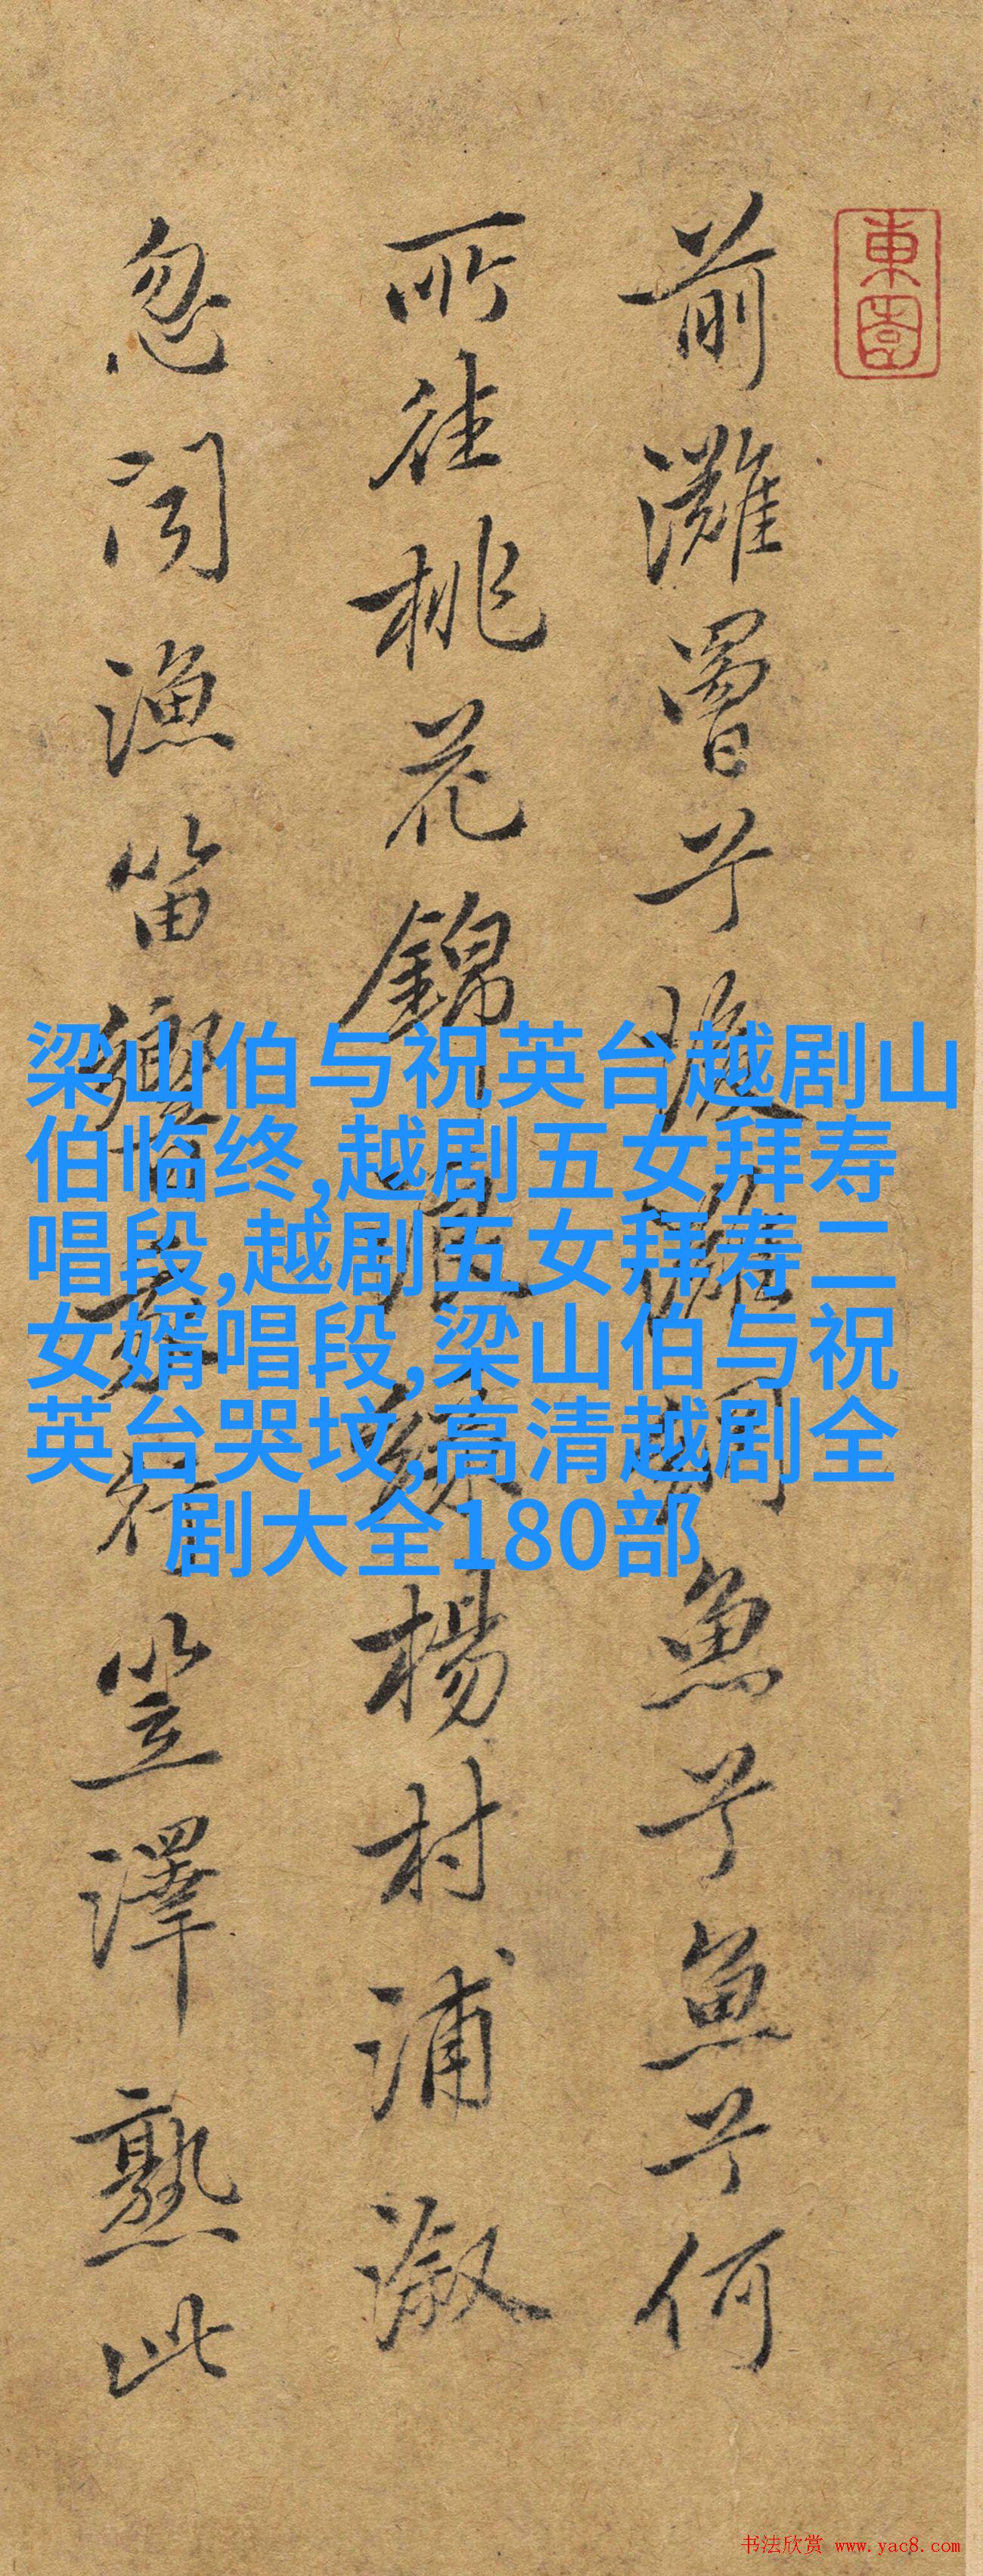 東園
前灘罾兮後灘網魚兮魚兮何
所往桃花錦浪綠楊村浦溆
忽聞漁笛響我行笠澤熟此
梁山伯与祝英台越剧山
伯临终,越剧五女拜寿
唱段,越剧五女拜寿二
女婿唱段,梁山伯与祝
英台哭坟,高清越剧全
剧大全180部
书法欣赏 www.yac8.com